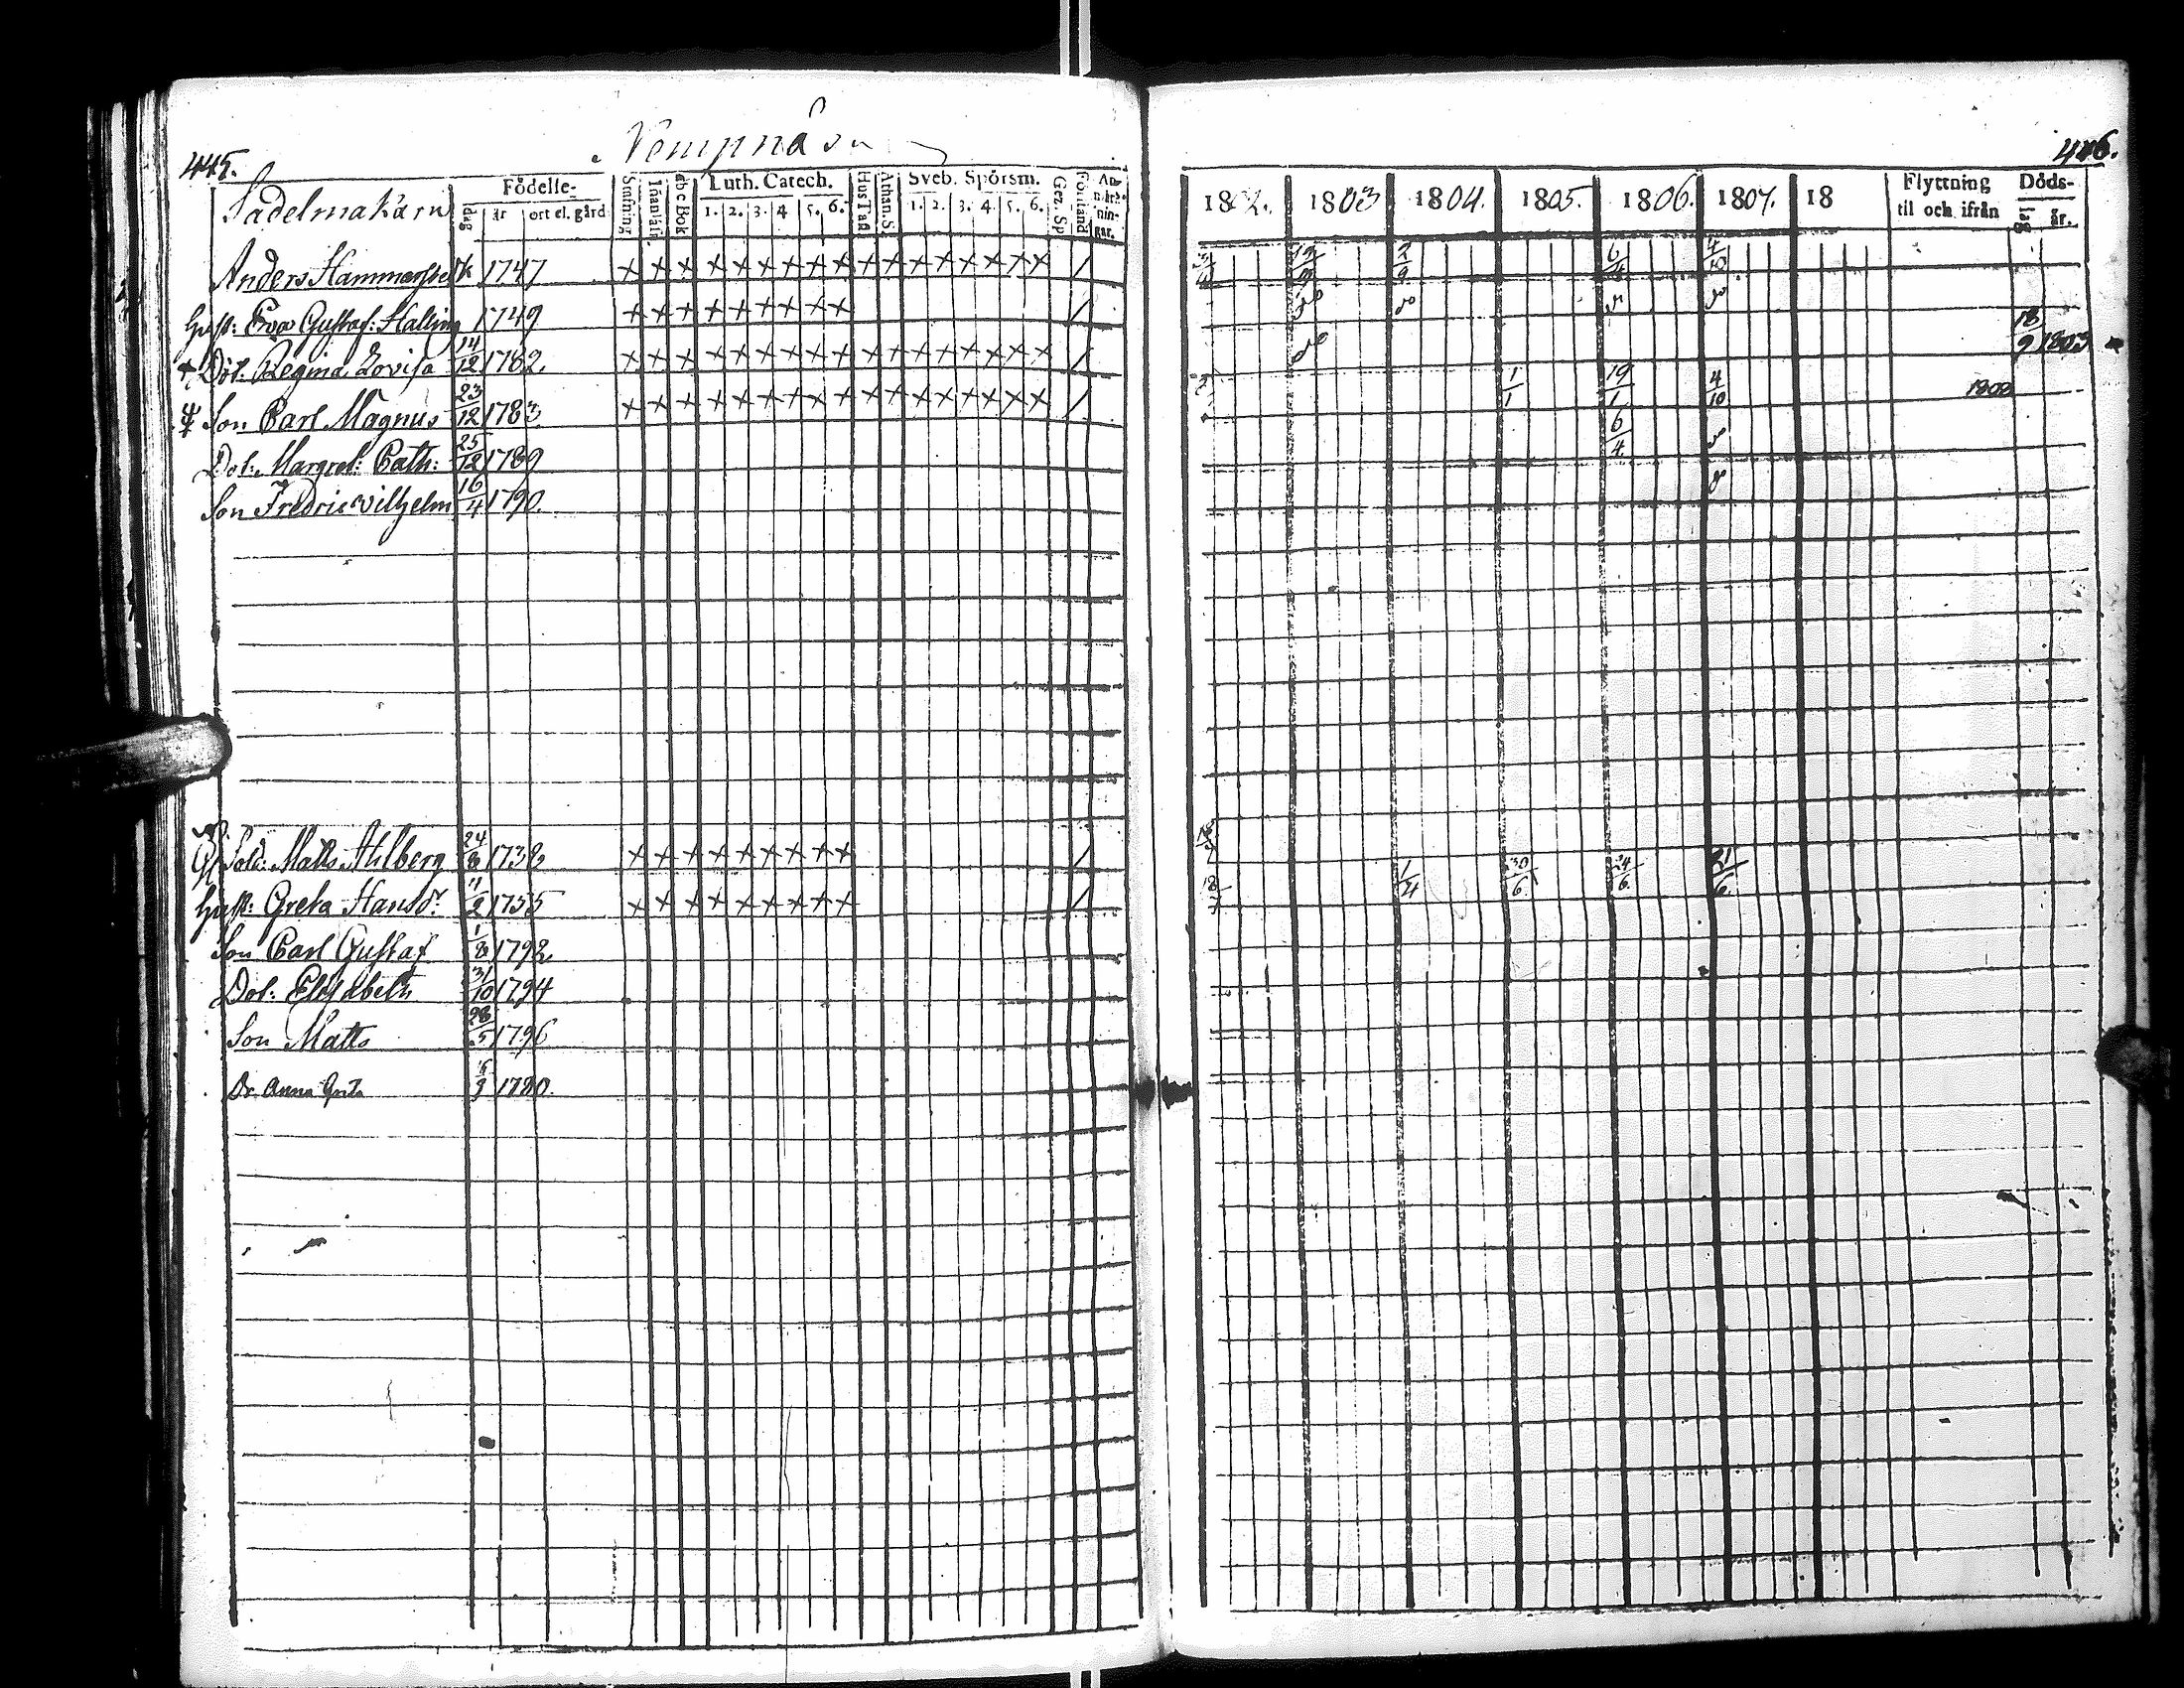 445.
Nempnäs
Sadelmakarn
Födelse-
dag år ort el. gård
Stafning Innanläsn. abc Bok Luth. Catech. Hus Tafl. Athan. S. Sveb. Spörsm. Gez. Sp Förstånd An-märk-nin-gar.
1. 2. 3. 4 5. 6. 1. 2. 3. 4. 5. 6.
Anders 1747 × × × × × × × × × × × × × × × × × /
Hust: Eva Gustaf: Halling 1749 × × × × × × × × × /
+ Dot: Regina Lovisa 14/12 1782 × × × × × × × × × × × × × × × × × /
Son Carl Magnus 23/12 1783 × × × × × × × × × × × × × × × × × /
Dot: Margret: Cath: 25/12 1789
Son Fredric Vilhelm 16/4 1790.
Sold: Matts Ahlberg 24/8 1738 × × × × × × × × × /
Hust: Greta Hansdr 1755 × × × × × × × × × /
Son Carl Gustaf 1/8 1792
Dot: Elisabeth 31/10 1794
Son Matts 28/5 1796
Dr Anna Greta 1780.
446.
1802. 1803 1804. 1805. 1806. 1807. 18 Flyttning til och ifrån Döds- dag år.
2/9 6/4 4/10
do do do do
do 18/9 1803
1/1 19/1 4/10 1802
6/4 do
do
18/7 1/4 30/6 24/6 21/6